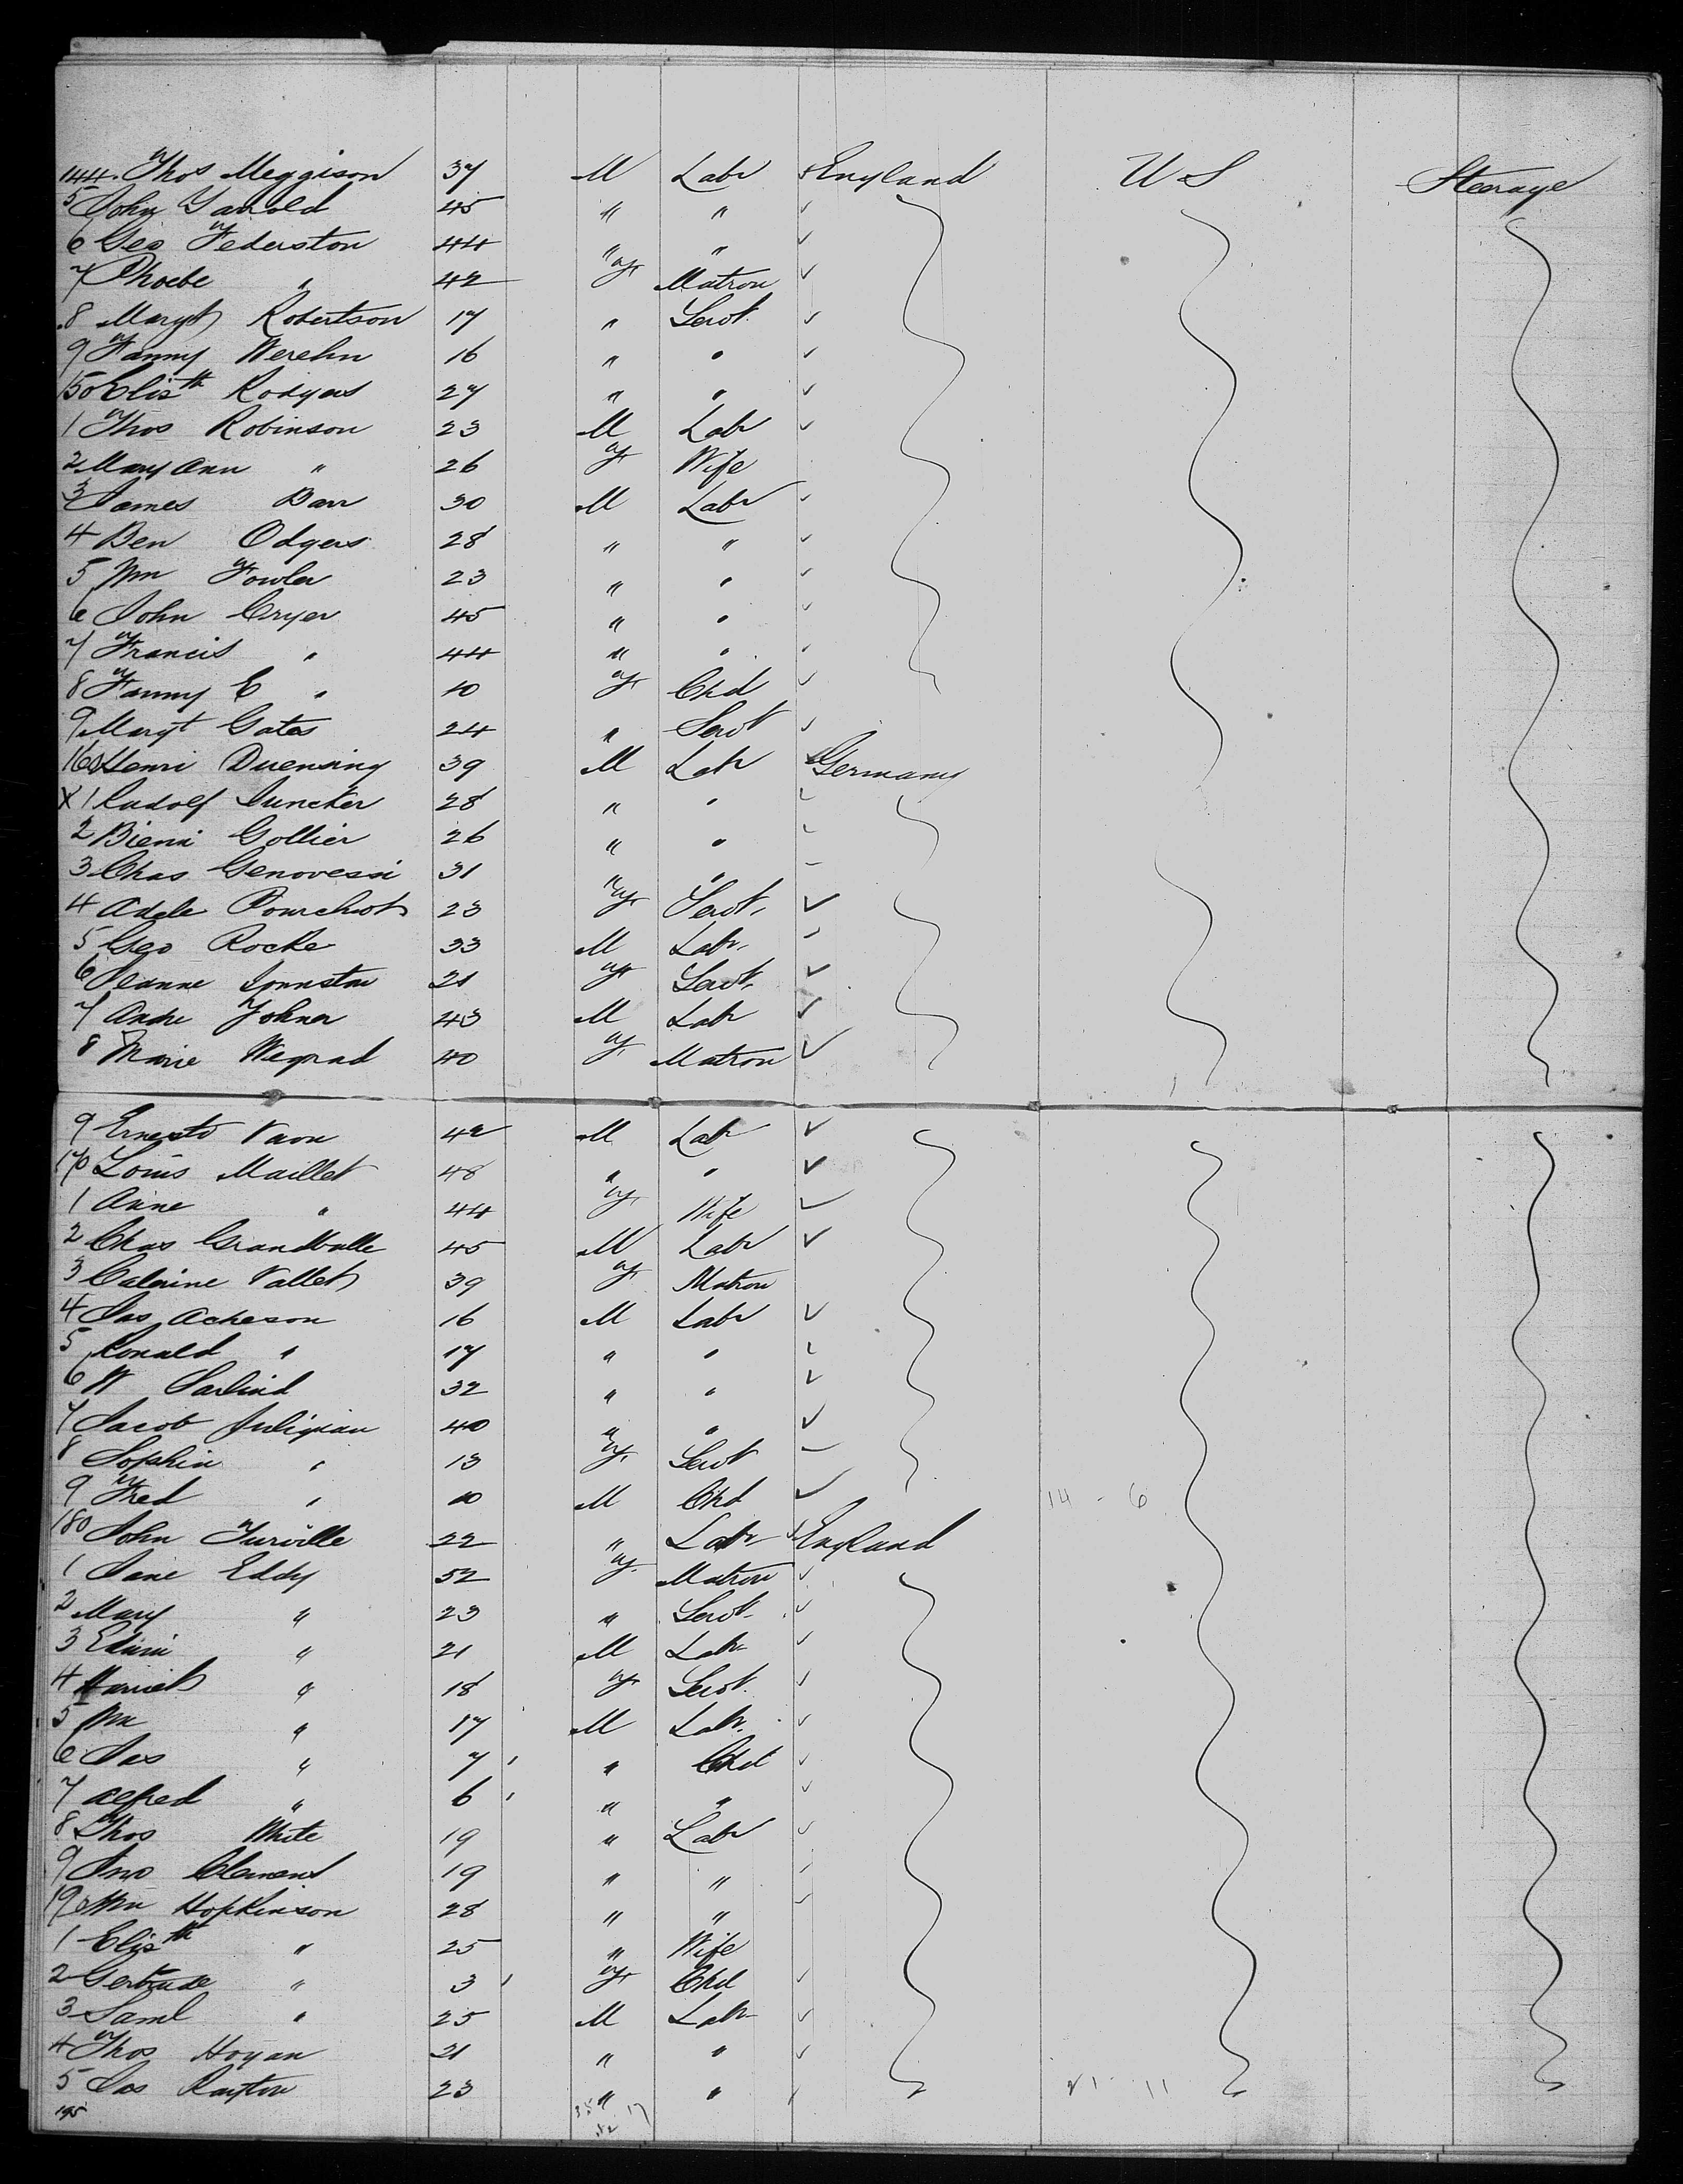 144. Thos Meggison 37 M Labr England U S Steerage
5 John Yarrold 45 " "
6 Geo Federston 44 " "
7 Phoebe " 42 F Matron
8 Margt Robertson 17 " Servt.
9 Fanny 16 " "
150 Elisth Rodgers 27 " "
1 Thos Robinson 23 M Labr
2 Mary Ann " 26 F Wife
3 James Barr 30 M Labr
4 Ben Odgers 28 " "
5 Wm Fowler 23 " "
6 John Cryer 45 " "
7 Francis " 44 " "
8 Fanny E " 10 F Chd
9 Margt Gates 24 " Servt
160 Henri Duensing 39 M Labr Germany
X 1 Rudolf Juncker 28 " "
2 Gollier 26 " "
3 Chas Genovessi 31 " "
4 Adele Pourchot 23 F Servt.
5 Geo Rocke 33 M Labr.
6 Jeanne 21 F Servt.
7 Andre Johner 43 M Labr
8 Marie Wegrad 40 F Matron
9 Ernesto 42 M Labr
170 Louis Maillet 48 " "
1 Anne " 44 F Wife
2 Chas 45 M Labr
3 Vallet 39 F Matron
4 Jas Acheson 16 M Labr
5 Ronald " 17 " "
6 W 32 " "
7 Jacob 40 " "
8 Sophia " 13 F Servt
9 Fred " 10 M Chd 14 - 6
180 John Turville 22 " Labr England
1 Jane Eddy 52 F. Matron
2 Mary " 23 " Servt.
3 Edwin " 21 M Labr
4 Harriet " 18 F Servt.
5 Wm " 17 M Labr.
6 Jas " 7 " Chd
7 Alfred " 6 " "
8 Thos White 19 " Labr
9 Jno Clement 19 " "
190 Wm Hopkinson 28 " "
1 Elizth " 25 " Wife
2 Gertrude " 3 F Chd
3 Saml " 25 M Labr
4 Thos Hogan 21 " "
5 Jas Rayton 23 " " 21 - 11
195